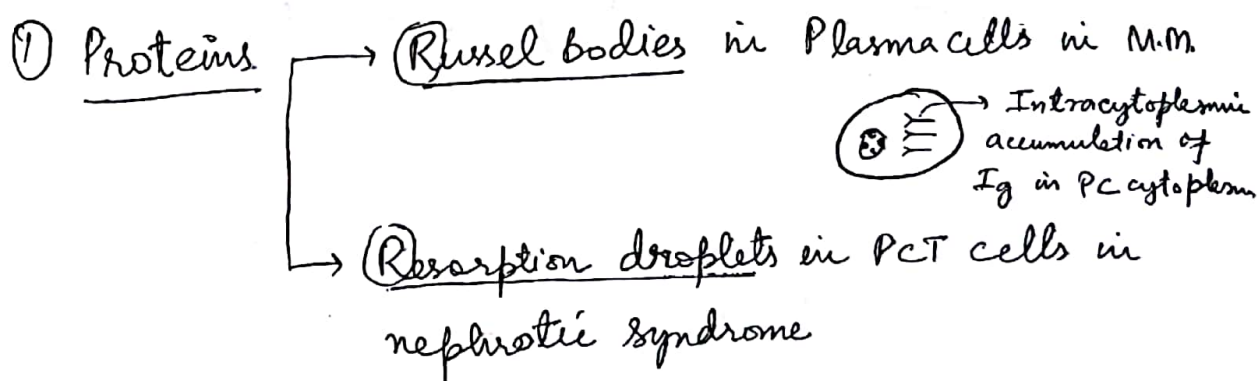 ① Proteins → Russel bodies in Plasma cells in M.M.
→ Intracytoplasmic
accumulation of
Ig in PC cytoplasm
→ Resorption droplets in PCT cells in
nephrotic syndrome